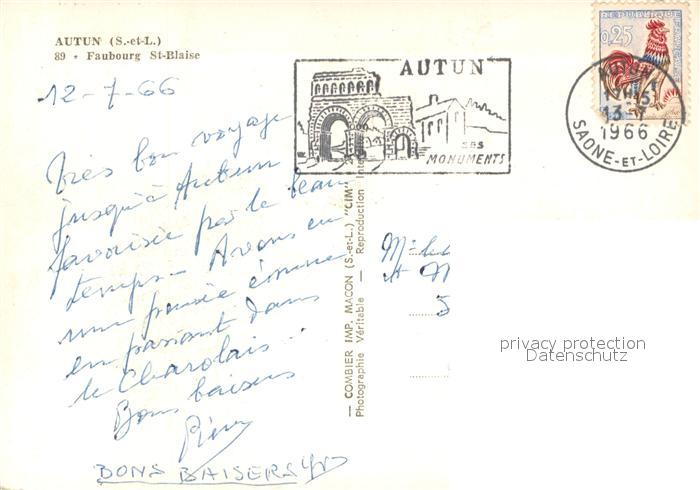 AUTUN (S.-et-L.)
89 - Faubourg St-Blaise
12-7-66
Très bon voyage
jusqu'à Autun
favorisée par le beau
temps - Avons eu
une pensée émue
en passant dans
le Charolais...
Bons baisers
Pierre
BONS BAISERS
— COMBIER IMP. MACON (S.-et-L.) "CIM" —
Photographie Véritable — Reproduction Inter
AUTUN
SES
MONUMENTS
REPUBLIQUE FRANÇAISE
0,25
AUTUN
13-7
1966
SAONE-ET-LOIRE
5
privacy protection
Datenschutz